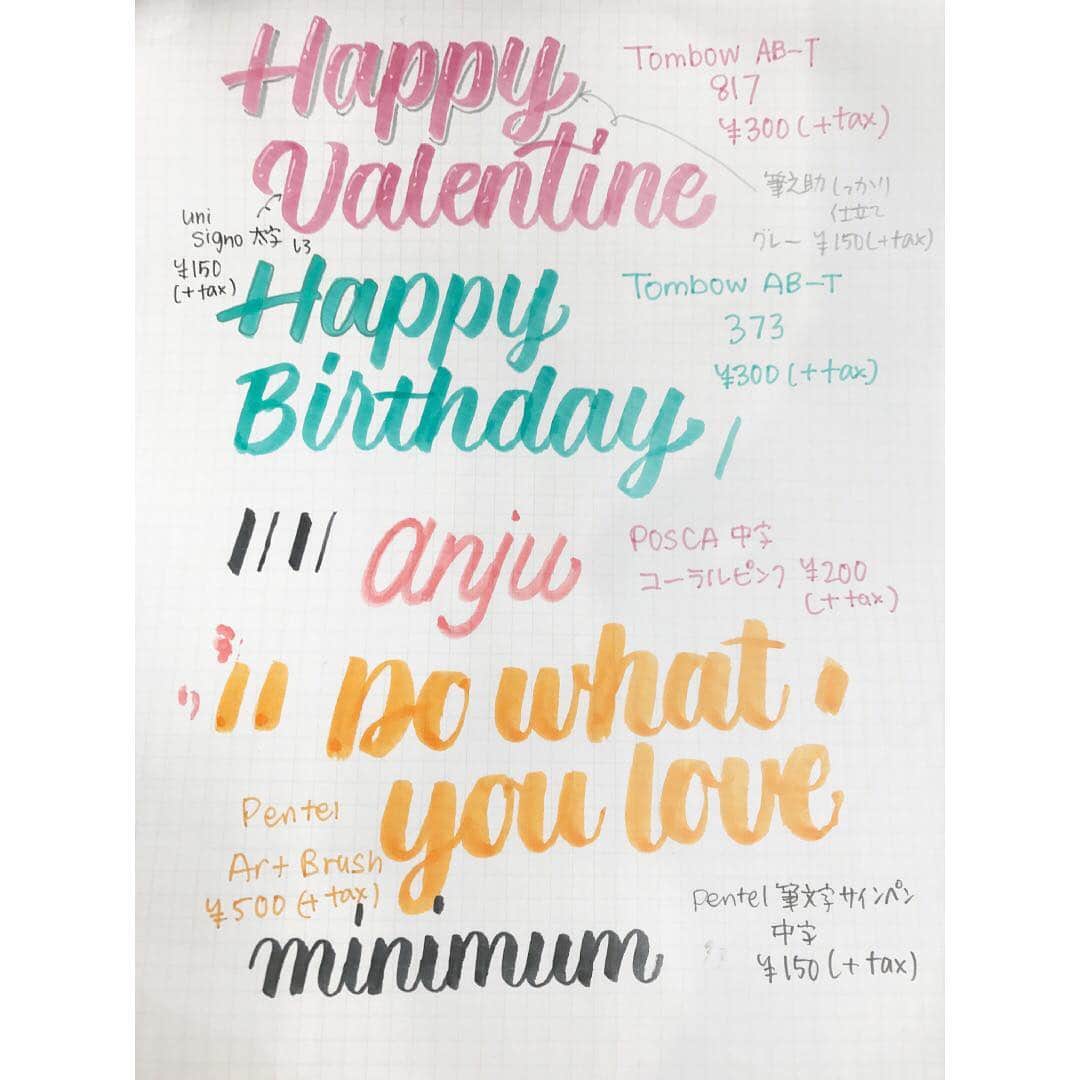 Happy
Valentine
Tombow AB-T
817
¥300(+tax)
筆之助しっかり
仕立て
グレー ¥150(+tax)
uni
Signo 太字 しろ
¥150
(+tax)
Happy
Birthday
Tombow AB-T
373
¥300(+tax)
anju
POSCA 中字
コーラルピンク ¥200
(+tax)
Do what
you love
Pentel
Art Brush
¥500(+tax)
minimum
Pentel 筆文字サインペン
中字
¥150(+tax)